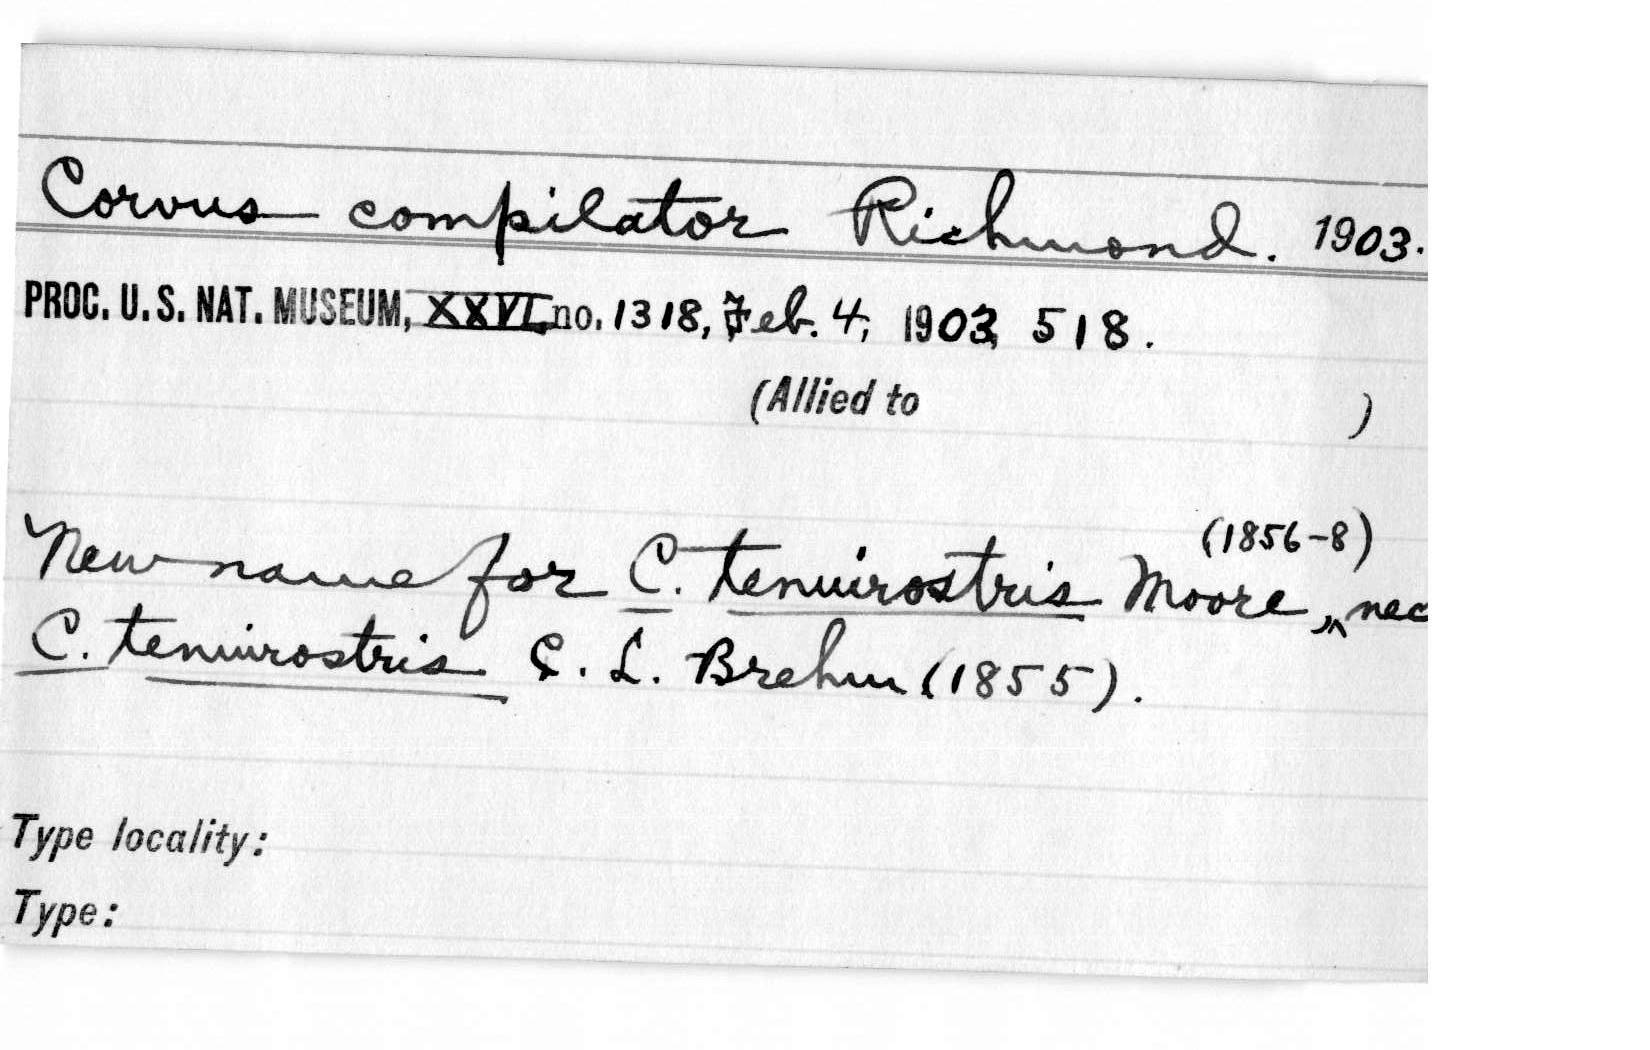 Corvus compilator Richmond. 1903.
PROC. U.S. NAT. MUSEUM, XXVI, no. 1318, Feb. 4, 1903, 518.
(Allied to )
(1856-8)
New name for C. tenuirostris Moore, nec
C. tenuirostris C. L. Brehm (1855).
Type locality:
Type: